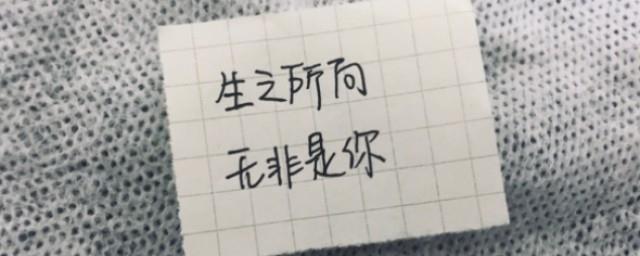 生之所向
无非是你